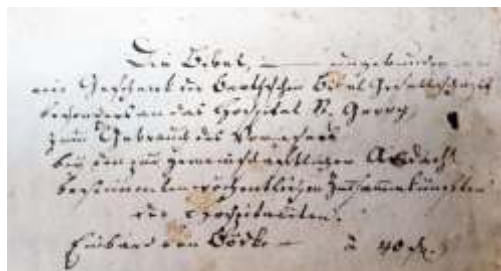 Die Bibel, — ungebunden
ein Geschenk der Barthschen Bibel Gesellschaft
besonders an das Hospital St. Georg,
zum Gebrauch des Vorlesers
bei den zur gemeinschaftlichen Andacht
bestimmten wöchentlichen Zusammenkünften
der Hospitaliten.
Einband von Bödker — à 40 ßl.